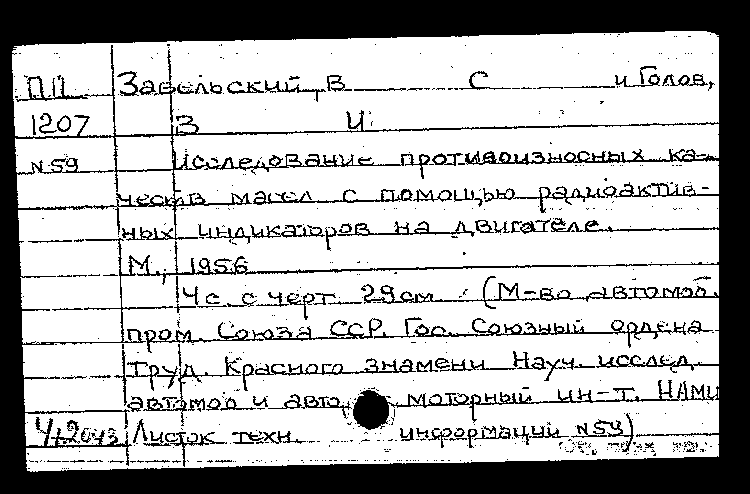 ПП Забельский, В С и Голов,
1207 В И
N 59 Исследование противоизносных ка-
честв масел с помощью радиоактив-
ных индикаторов на двигателе.
М., 1956
4 с. с черт. 29 см. (М-во автомоб.
пром. Союза ССР. Гос. Союзный ордена
Труд. Красного знамени Науч. исслед.
автомоб и авто моторный ин-т. НАМИ
Листок техн. информации N 59)